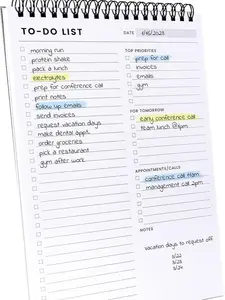 TO-DO LIST
DATE 5/15/2023
morning run
protein shake
pack a lunch
electrolytes
prep for conference call
print notes
follow up emails
send invoices
request vacation days
make dental appt.
order groceries
pick a restaurant
gym after work
TOP PRIORITIES
prep for call
invoices
emails
gym
FOR TOMORROW
early conference call
team lunch @1pm
APPOINTMENTS/CALLS
conference call 11am
management call 2pm
NOTES
vacation days to request off:
5/22
5/23
5/24